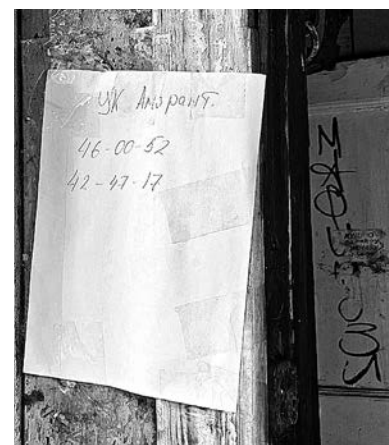 УК Амарант.
46-00-52
42-47-17